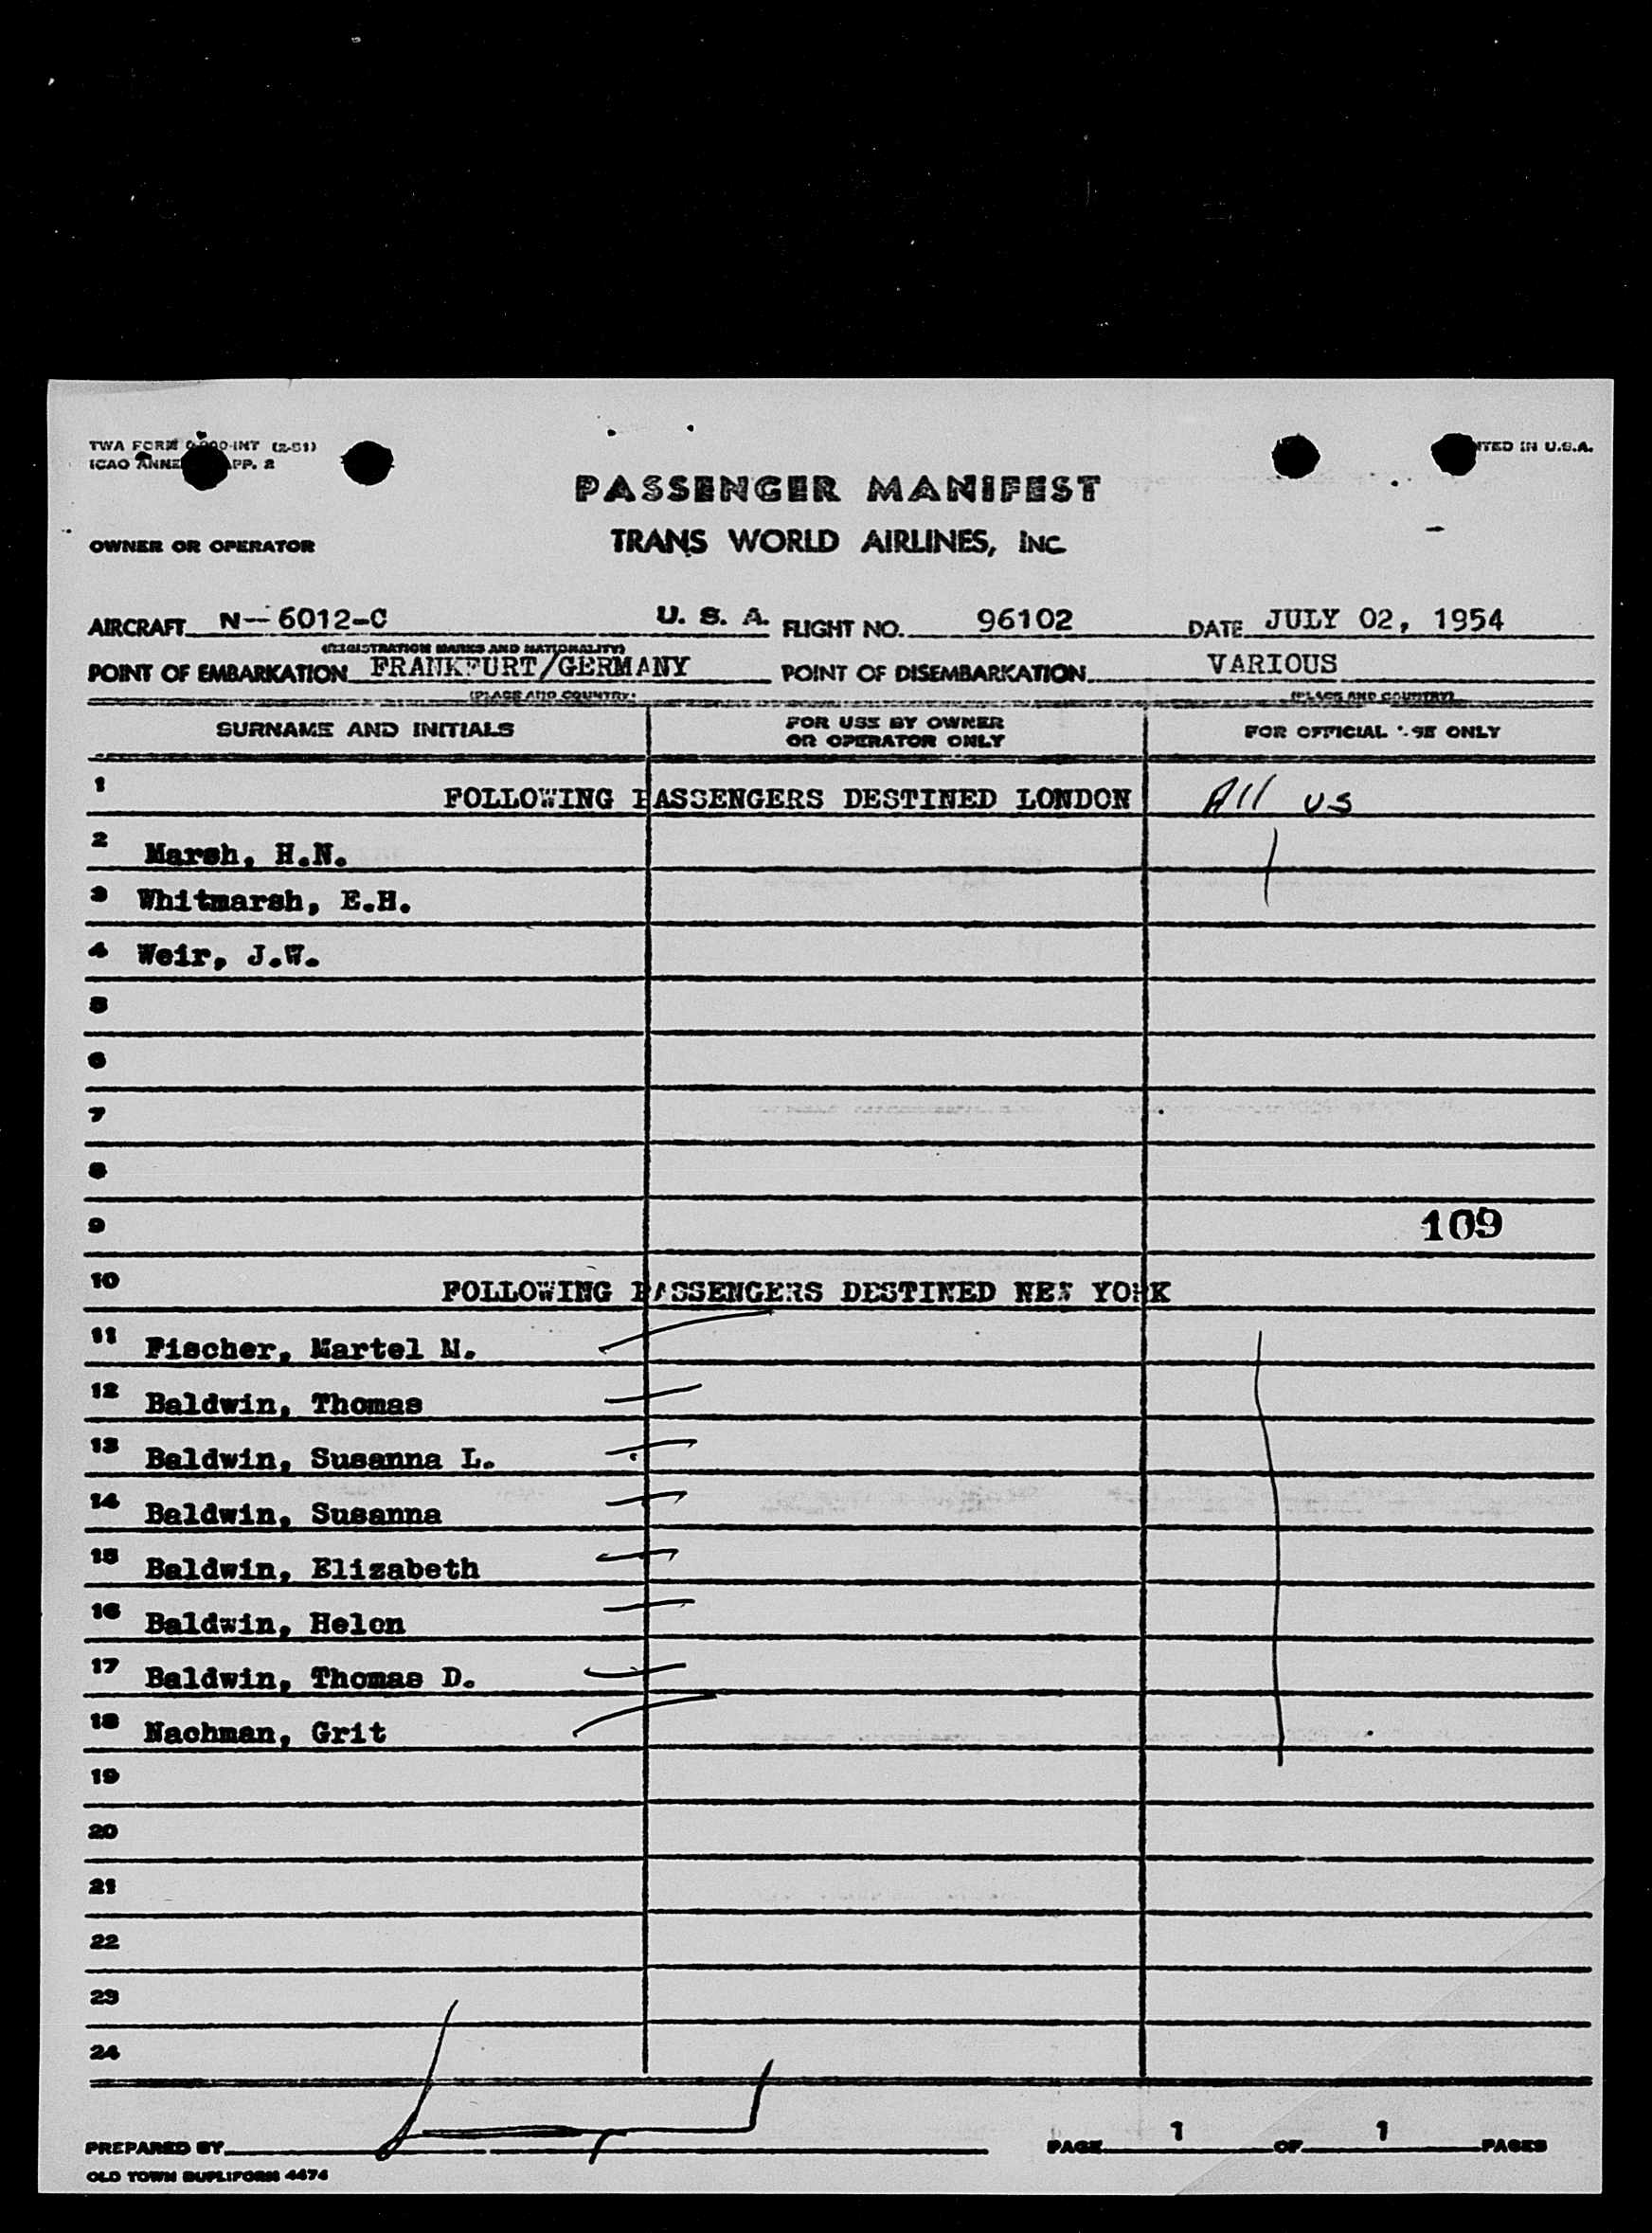 TWA FORM INT (2-51) TED IN U.S.A.
ICAO ANNE PP. 2
PASSENGER MANIFEST
OWNER OR OPERATOR TRANS WORLD AIRLINES, INC
AIRCRAFT N-- 6012-C U. S. A. FLIGHT NO. 96102 DATE JULY 02, 1954
(REGISTRATION MARKS AND NATIONALITY)
POINT OF EMBARKATION FRANKFURT/GERMANY POINT OF DISEMBARKATION VARIOUS
(PLACE AND COUNTRY) (PLACE AND COUNTRY)
SURNAME AND INITIALS FOR USE BY OWNER OR OPERATOR ONLY FOR OFFICIAL USE ONLY
1 FOLLOWING PASSENGERS DESTINED LONDON All US
2 Marsh, H.N.
3 Whitmarsh, E.H.
4 Weir, J.W.
5
6
7
8
9 109
10 FOLLOWING PASSENGERS DESTINED NEW YORK
11 Fischer, Martel N.
12 Baldwin, Thomas
13 Baldwin, Susanna L.
14 Baldwin, Susanna
15 Baldwin, Elizabeth
16 Baldwin, Helen
17 Baldwin, Thomas D.
18 Nachman, Grit
19
20
21
22
23
24
PREPARED BY PAGE 1 OF 1 PAGES
OLD TOWN DUPLIFORM 4474